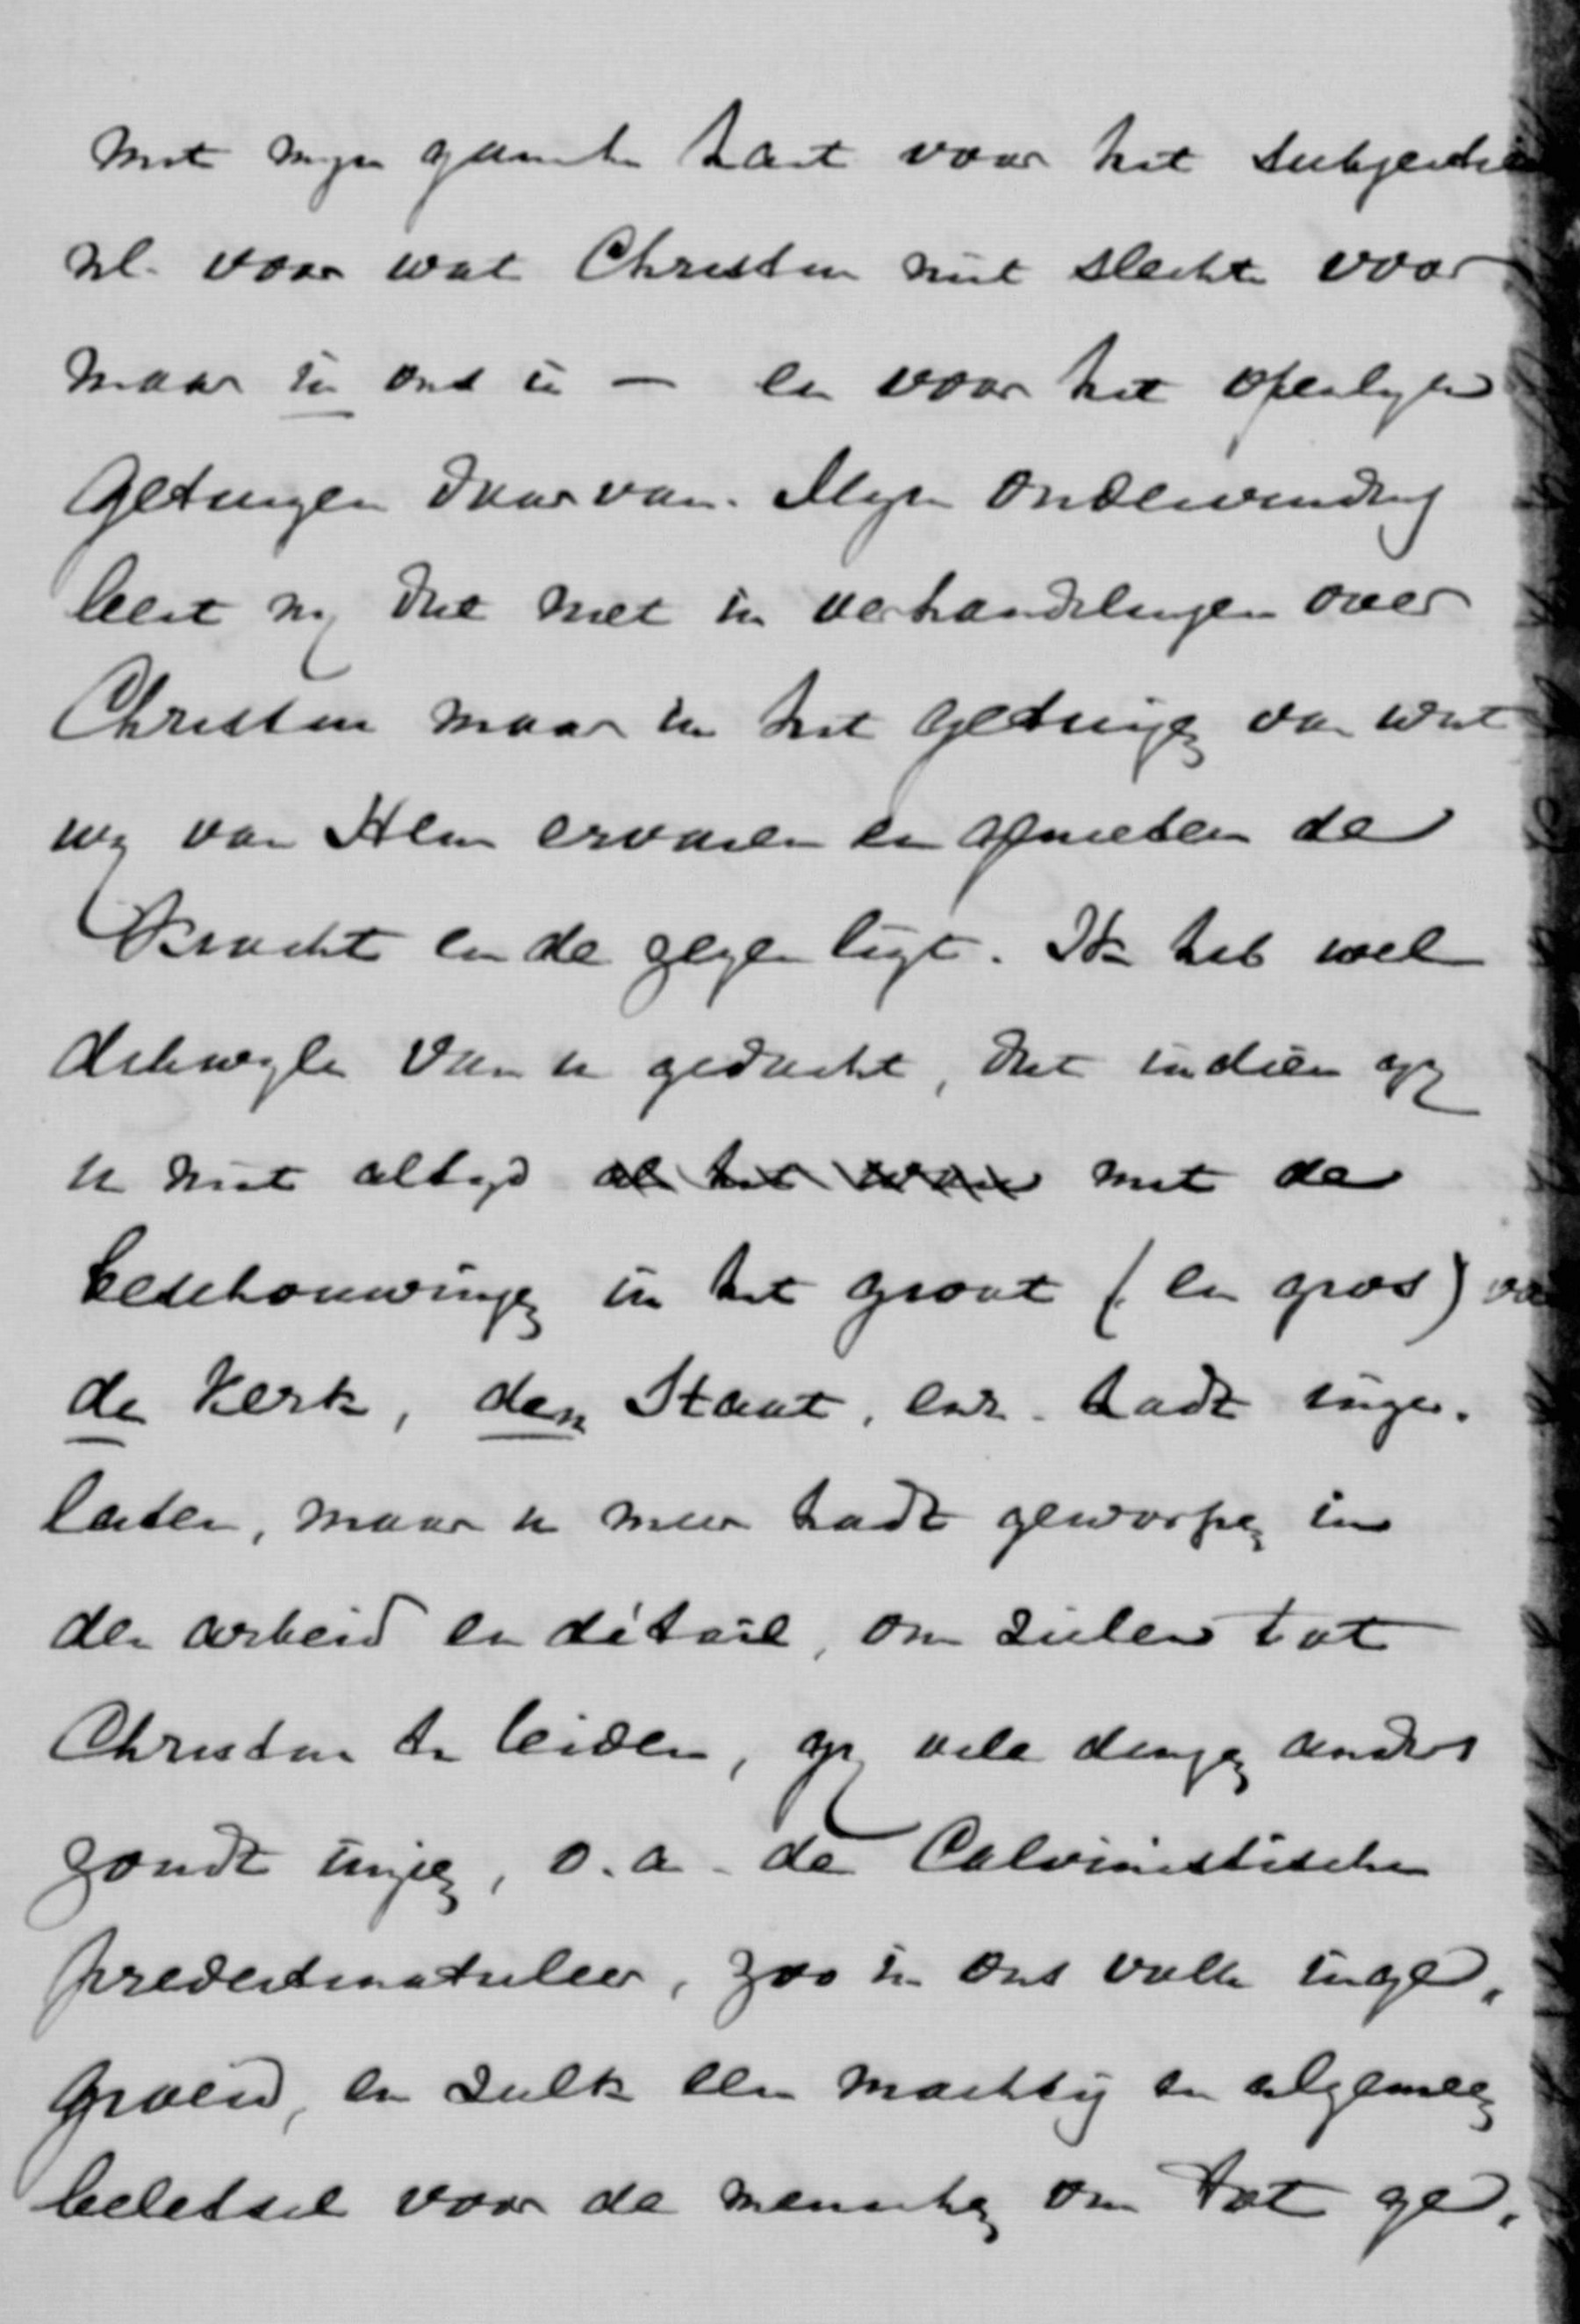 met mijn gansche hart voor het subjectieve
nl. voor wat Christus niet slechts voor
maar in ons is — en voor het openlijk
getuigen daarvan. Mijn ondervinding
leert mij dat niet in verhandelingen over
Christus maar in het getuigen van wat
wij van Hem ervaren en genieten de
Kracht en de zegen ligt. Ik heb wel
dikwijls van u gedacht, dat indien gij
u niet altijd al het ware met de
beschouwingen in het groot (en gros) van
de Kerk, den Staat, enz. hadt inge-
laten, maar u meer hadt geworpen in
den arbeid en détail, om zielen tot
Christus te leiden, gij vele dingen anders
zoudt inzien, o.a. de Calvinistische
predestinatieleer, zoo in ons volk inge-
groeid, en zulk een machtig en algemeen
beletsel voor de menschen om tot ge-